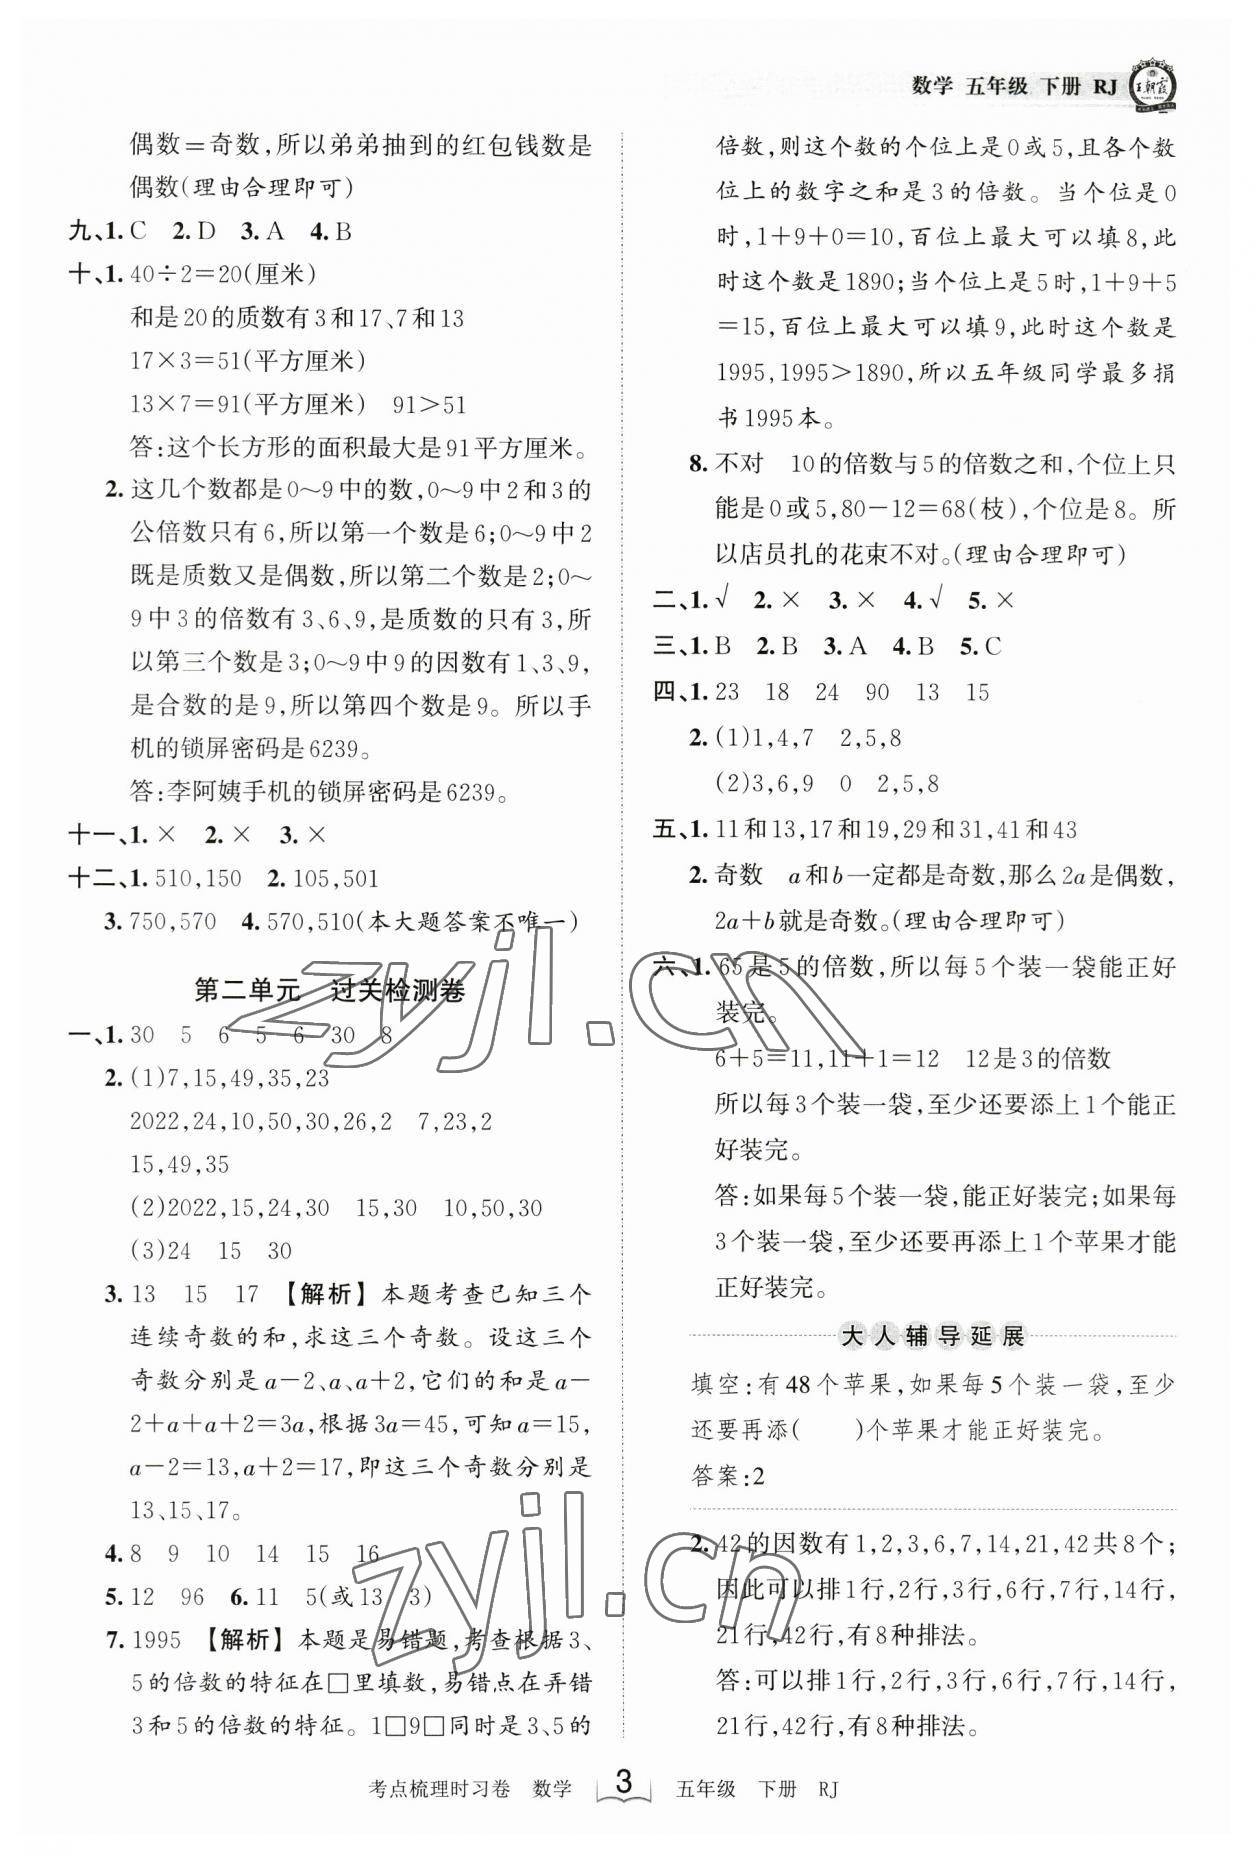 数学 五年级 下册 RJ
王朝霞
偶数=奇数,所以弟弟抽到的红包钱数是
偶数(理由合理即可)
九、1. C 2. D 3. A 4. B
十、1. 40÷2=20(厘米)
和是20的质数有3和17、7和13
17×3=51(平方厘米)
13×7=91(平方厘米) 91>51
答:这个长方形的面积最大是91平方厘米。
2. 这几个数都是0~9中的数,0~9中2和3的
公倍数只有6,所以第一个数是6;0~9中2
既是质数又是偶数,所以第二个数是2;0~
9中3的倍数有3、6、9,是质数的只有3,所
以第三个数是3;0~9中9的因数有1、3、9,
是合数的是9,所以第四个数是9。所以手
机的锁屏密码是6239。
答:李阿姨手机的锁屏密码是6239。
十一、1. × 2. × 3. ×
十二、1. 510,150 2. 105,501
3. 750,570 4. 570,510(本大题答案不唯一)
第二单元 过关检测卷
一、1. 30 5 6 5 6 30 8
2. (1)7,15,49,35,23
2022,24,10,50,30,26,2 7,23,2
15,49,35
(2)2022,15,24,30 15,30 10,50,30
(3)24 15 30
3. 13 15 17 【解析】本题考查已知三个
连续奇数的和,求这三个奇数。设这三个
奇数分别是a-2、a、a+2,它们的和是a-
2+a+a+2=3a,根据3a=45,可知a=15,
a-2=13,a+2=17,即这三个奇数分别是
13、15、17。
4. 8 9 10 14 15 16
5. 12 96 6. 11 5(或13 3)
7. 1995 【解析】本题是易错题,考查根据3、
5的倍数的特征在□里填数,易错点在弄错
3和5的倍数的特征。1□9□同时是3、5的
倍数,则这个数的个位上是0或5,且各个数
位上的数字之和是3的倍数。当个位是0
时,1+9+0=10,百位上最大可以填8,此
时这个数是1890;当个位上是5时,1+9+5
=15,百位上最大可以填9,此时这个数是
1995,1995>1890,所以五年级同学最多捐
书1995本。
8. 不对 10的倍数与5的倍数之和,个位上只
能是0或5,80-12=68(枝),个位是8。所
以店员扎的花束不对。(理由合理即可)
二、1. √ 2. × 3. × 4. √ 5. ×
三、1. B 2. B 3. A 4. B 5. C
四、1. 23 18 24 90 13 15
2. (1)1,4,7 2,5,8
(2)3,6,9 0 2,5,8
五、1. 11和13,17和19,29和31,41和43
2. 奇数 a和b一定都是奇数,那么2a是偶数,
2a+b就是奇数。(理由合理即可)
六、1. 65是5的倍数,所以每5个装一袋能正好
装完。
6+5=11,11+1=12 12是3的倍数
所以每3个装一袋,至少还要添上1个能正
好装完。
答:如果每5个装一袋,能正好装完;如果每
3个装一袋,至少还要再添上1个苹果才能
正好装完。
大人辅导延展
填空:有48个苹果,如果每5个装一袋,至少
还要再添( )个苹果才能正好装完。
答案:2
2. 42的因数有1,2,3,6,7,14,21,42共8个;
因此可以排1行,2行,3行,6行,7行,14行,
21行,42行,有8种排法。
答:可以排1行,2行,3行,6行,7行,14行,
21行,42行,有8种排法。
zyjl.cn
zyjl.cn
考点梳理时习卷 数学 3 五年级 下册 RJ